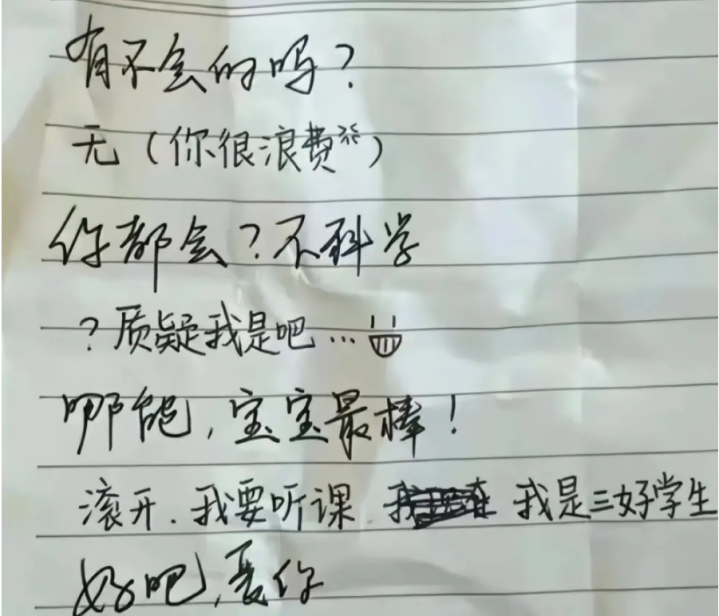 有不会的吗?
无(你很浪费)
你都会?不科学
?质疑我是吧…
哪能,宝宝最棒!
滚开.我要听课.我是三好学生
好吧,爱你